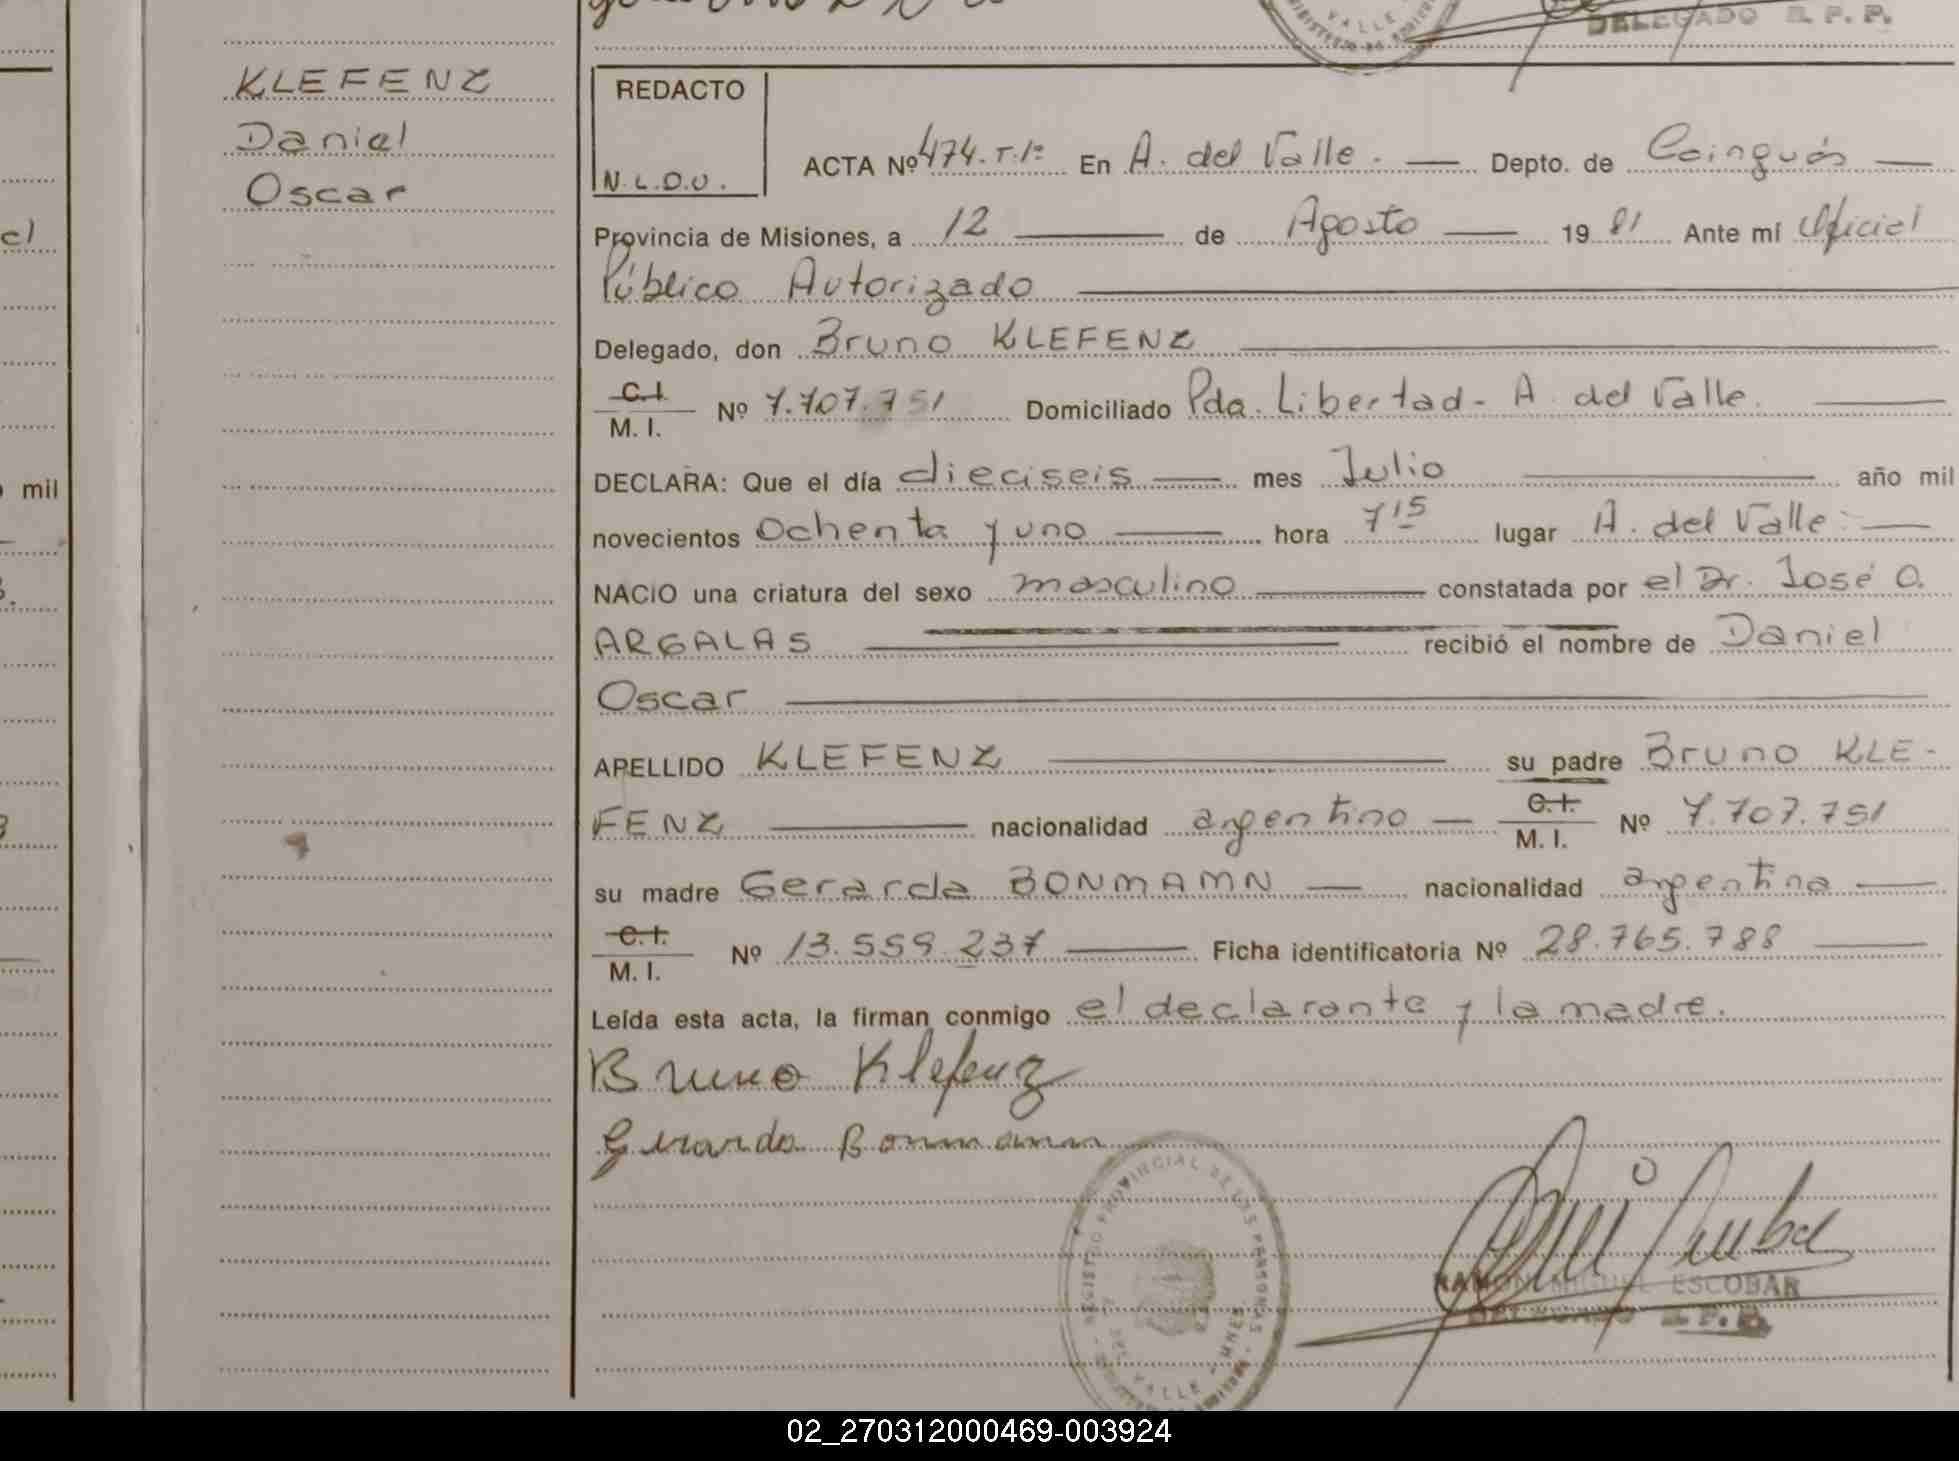 DELEGADO R. P. P.
KLEFENZ
Daniel
Oscar
REDACTO
N.L.D.U.
ACTA Nº 474.T.1º En A. del Valle. Depto. de Cainguás
Provincia de Misiones, a 12 de Agosto 19 81 Ante mí Oficial
Público Autorizado
Delegado, don Bruno KLEFENZ
C.I.
M. I. Nº 7.707.751 Domiciliado Pda. Libertad - A. del Valle.
DECLARA: Que el día dieciseis mes Julio año mil
novecientos Ochenta y uno hora 7 15 lugar A. del Valle.
NACIO una criatura del sexo masculino constatada por el Dr. José O.
ARGALAS recibió el nombre de Daniel
Oscar
APELLIDO KLEFENZ su padre Bruno KLE-
FENZ nacionalidad argentino C.I. M. I. Nº 7.707.751
su madre Gerarda BONMAMN nacionalidad argentina
C.I.
M. I. Nº 13.559.237 Ficha identificatoria Nº 28.765.788
Leída esta acta, la firman conmigo el declarante y la madre.
Bruno Klefenz
Gerarda Bonmann
REGISTRO PROVINCIAL DE LAS PERSONAS
DEL VALLE - MNES.
RAMON MIGUEL ESCOBAR
DELEGADO R. P. P.
mil
02_270312000469-003924